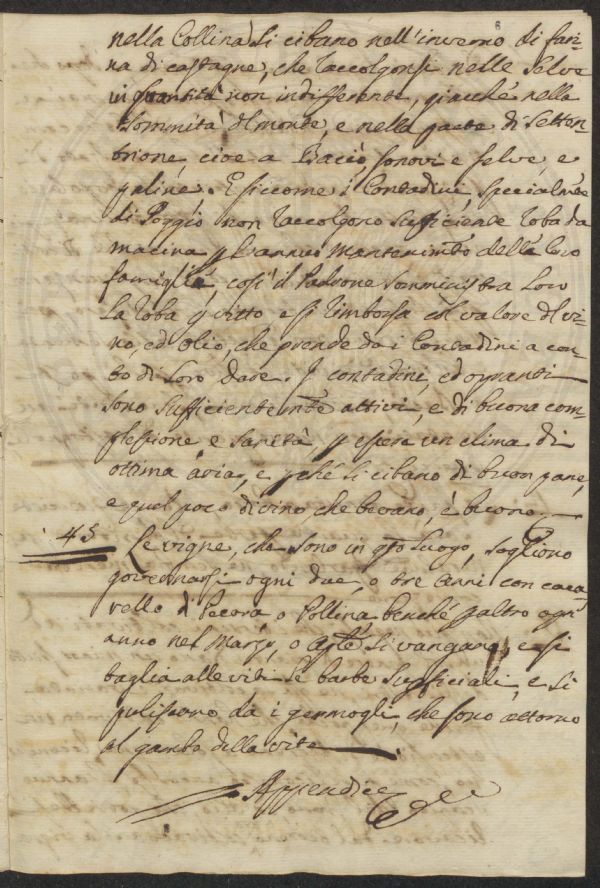 8
nella Collina si cibano nell'inverno di fari-
na di castagne, che raccolgonsi nelle selve
in quantità non indifferente, giacchè nella
sommità del monte, e nella parte di Setten-
trione, cioè a Bacìo sonovi e selve, e
paline. E siccome i Contadini, specialmte
di Poggio non raccolgono sufficiente roba da
macina p l'annuo mantenimto delle loro
famiglie, così il Padrone somministra loro
la roba p vitto e si rimborsa col valore del vi-
no, ed olio, che prende da i Contadini a con-
to di loro dare. I contadini, ed opranti
sono sufficientemte attivi, e di buona com-
plessione e sanità, p essere un clima di
ottima aria, e pchè si cibano di buon pane,
e quel poco di vino che bevano, è buono.
45 Le vigne, che sono in qsto luogo, sogliono
governarsi ogni due, o tre anni con caca-
rello di Pecora o Pollina benchè p altro ogn'
anno nel Marzo, o Aple si vangano, e si
taglia alle viti le barbe superficiali, e si
puliscano da i germogli, che sono attorno
al gambo della vite.
Appendice